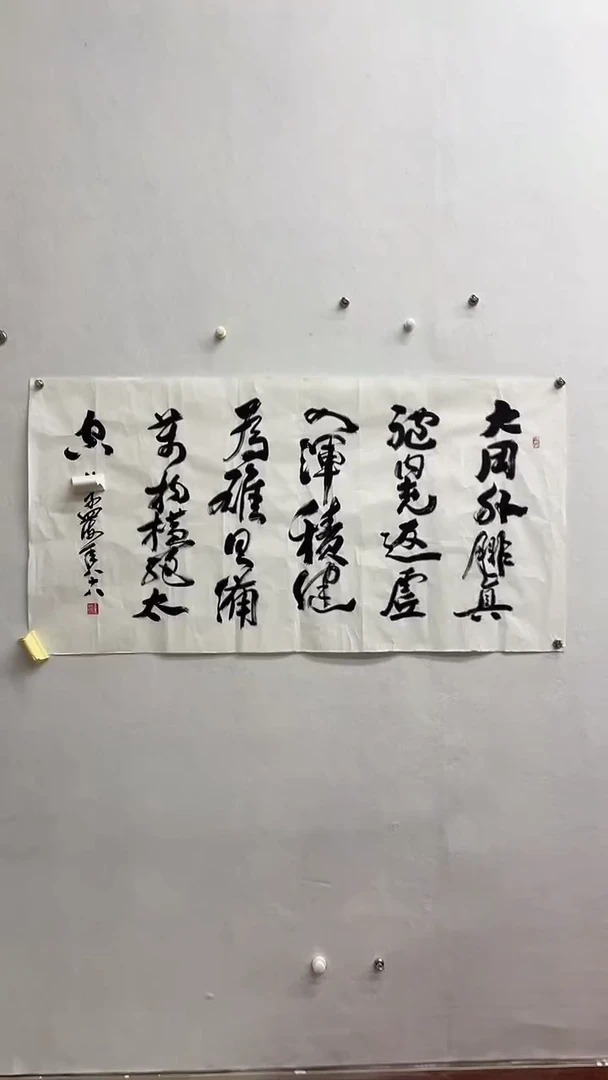 大用外腓真
體内充返虛
入渾積健
為雄具備
萬物橫絕太
空